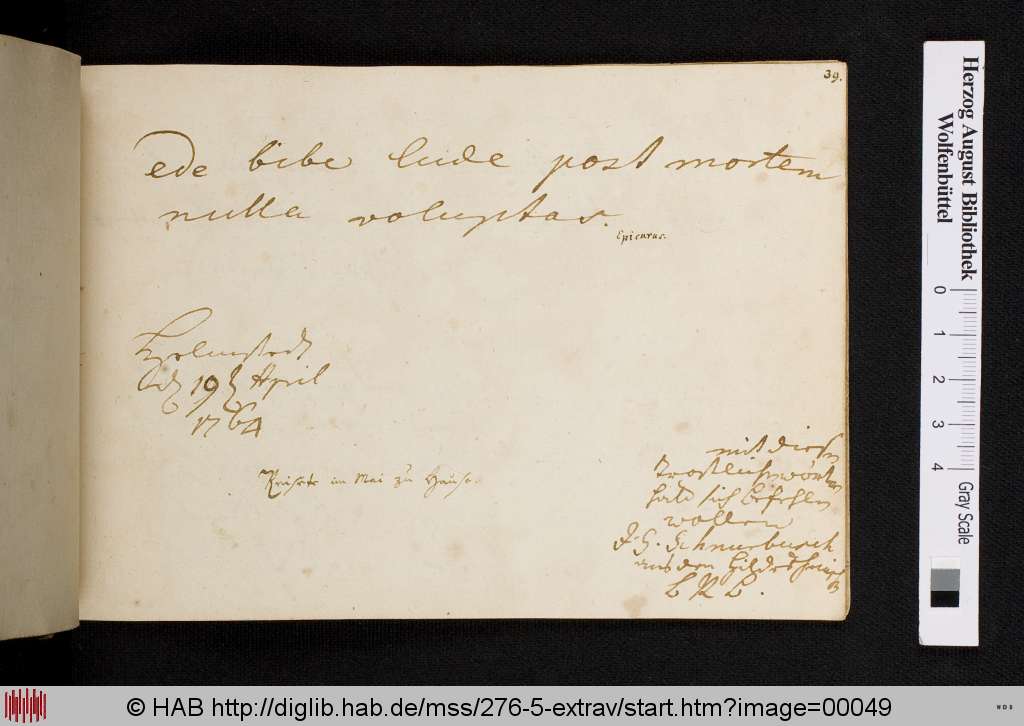 39.
ede bibe lude post mortem
nulla voluptas.
Epicurus.
Helmstedt
d 19 April
1764
Reisete im Mai zu Hause.
mit diesen
trostreichen worten
hatt sich befehlen
wollen
J. H. Schnurbusch
aus dem Hildesheim
Herzog August Bibliothek
Wolfenbüttel
0 1 2 3 4
Gray Scale
© HAB http://diglib.hab.de/mss/276-5-extrav/start.htm?image=00049